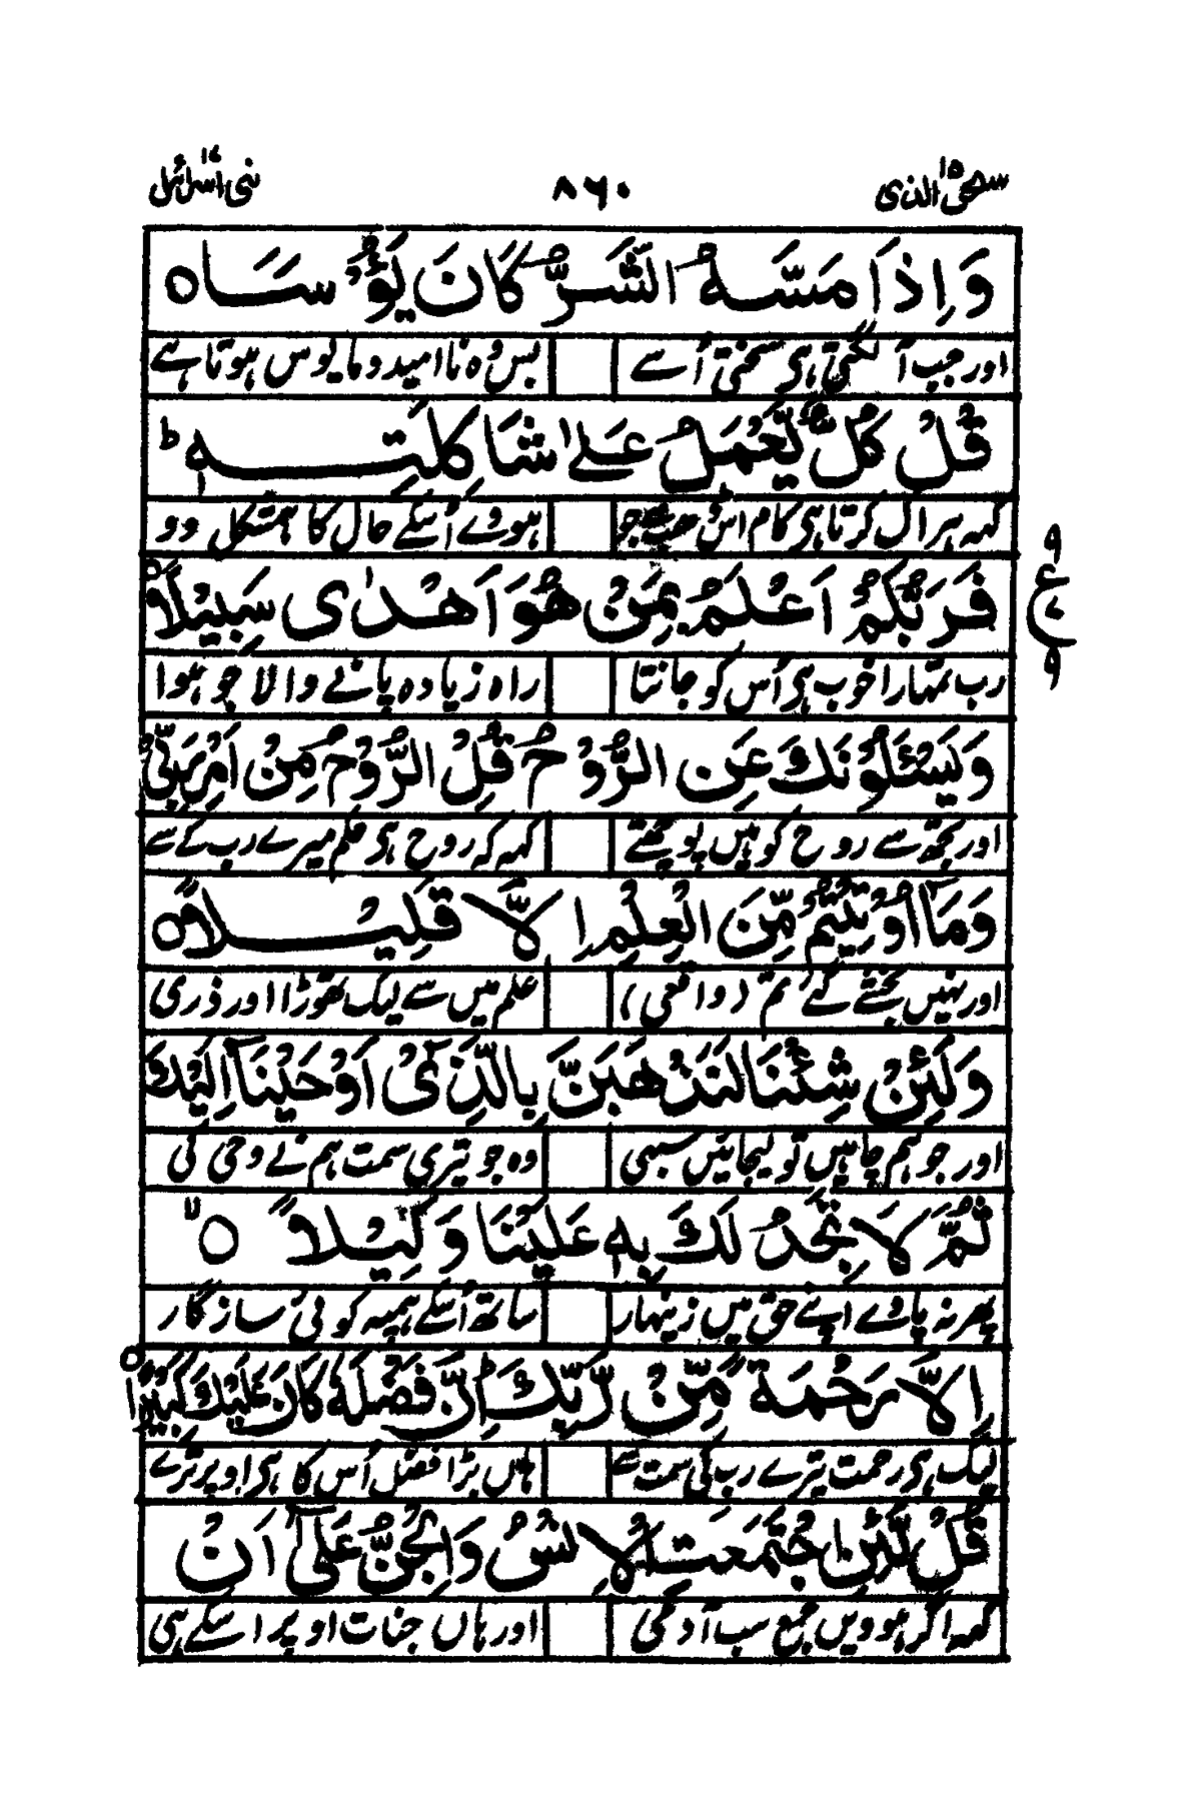 سبحن الذی ۱۵ ۸۶۰ بنی اسرائیل ۱۷
وَاِذَا مَسَّهُ الشَّرُّ كَانَ يَـُٔوْسًا ○
اور جب آ لگتی ہی سختی اُسے بس وُہ نا امید و مایوس ہوتا ہے
قُلْ كُلٌّ يَّعْمَلُ عَلٰى شَاكِلَتِهٖ ؕ
کہہ ہر اک کرتا ہی کام اُس ڈھب سے جو ہووے اُسکے حال کا ہمشکل دو
فَرَبُّكُمْ اَعْلَمُ بِمَنْ هُوَ اَهْدٰى سَبِيْلًا ○
رب تمہارا خوب ہی اُس کو جانتا راہ زیادہ پانے والا جو ہوا
۹ ع ۹
وَيَسْـَٔلُوْنَكَ عَنِ الرُّوْحِ قُلِ الرُّوْحُ مِنْ اَمْرِ رَبِّيْ
اور تجھ سے روح کو ہیں پوچھتے کہہ کہ روح ہی حکم میرے رب کے سے
وَمَآ اُوْتِيْتُمْ مِّنَ الْعِلْمِ اِلَّا قَلِيْلًا ○
اور نہیں بخشے گئے تم (واقعی) علم میں سے لیک تھوڑا اور ذری
وَلَئِنْ شِئْنَا لَنَذْهَبَنَّ بِالَّذِيْٓ اَوْحَيْنَآ اِلَيْكَ
اور جو ہم چاہیں تو لیجائیں سبھی وہ جو تیری سمت ہم نے وحی کی
ثُمَّ لَا تَجِدُ لَكَ بِهٖ عَلَيْنَا وَكِيْلًا ○ ۙ
پھر نہ پاوے اپنے حق میں زینہار ساتھ اُسکے ہمپہ کوئی سازگار
اِلَّا رَحْمَةً مِّنْ رَّبِّكَ ؕ اِنَّ فَضْلَهٗ كَانَ عَلَيْكَ كَبِيْرًا ○
لیک ہی رحمت تیرے رب کی سمت سے ہاں بڑا فضل اُس کا ہی اوپر ترے
قُلْ لَّئِنِ اجْتَمَعَتِ الْاِنْسُ وَالْجِنُّ عَلٰٓى اَنْ
کہہ اگر ہوویں جمع سب آدمی اور ہاں جنات اوپر اسکے ہی